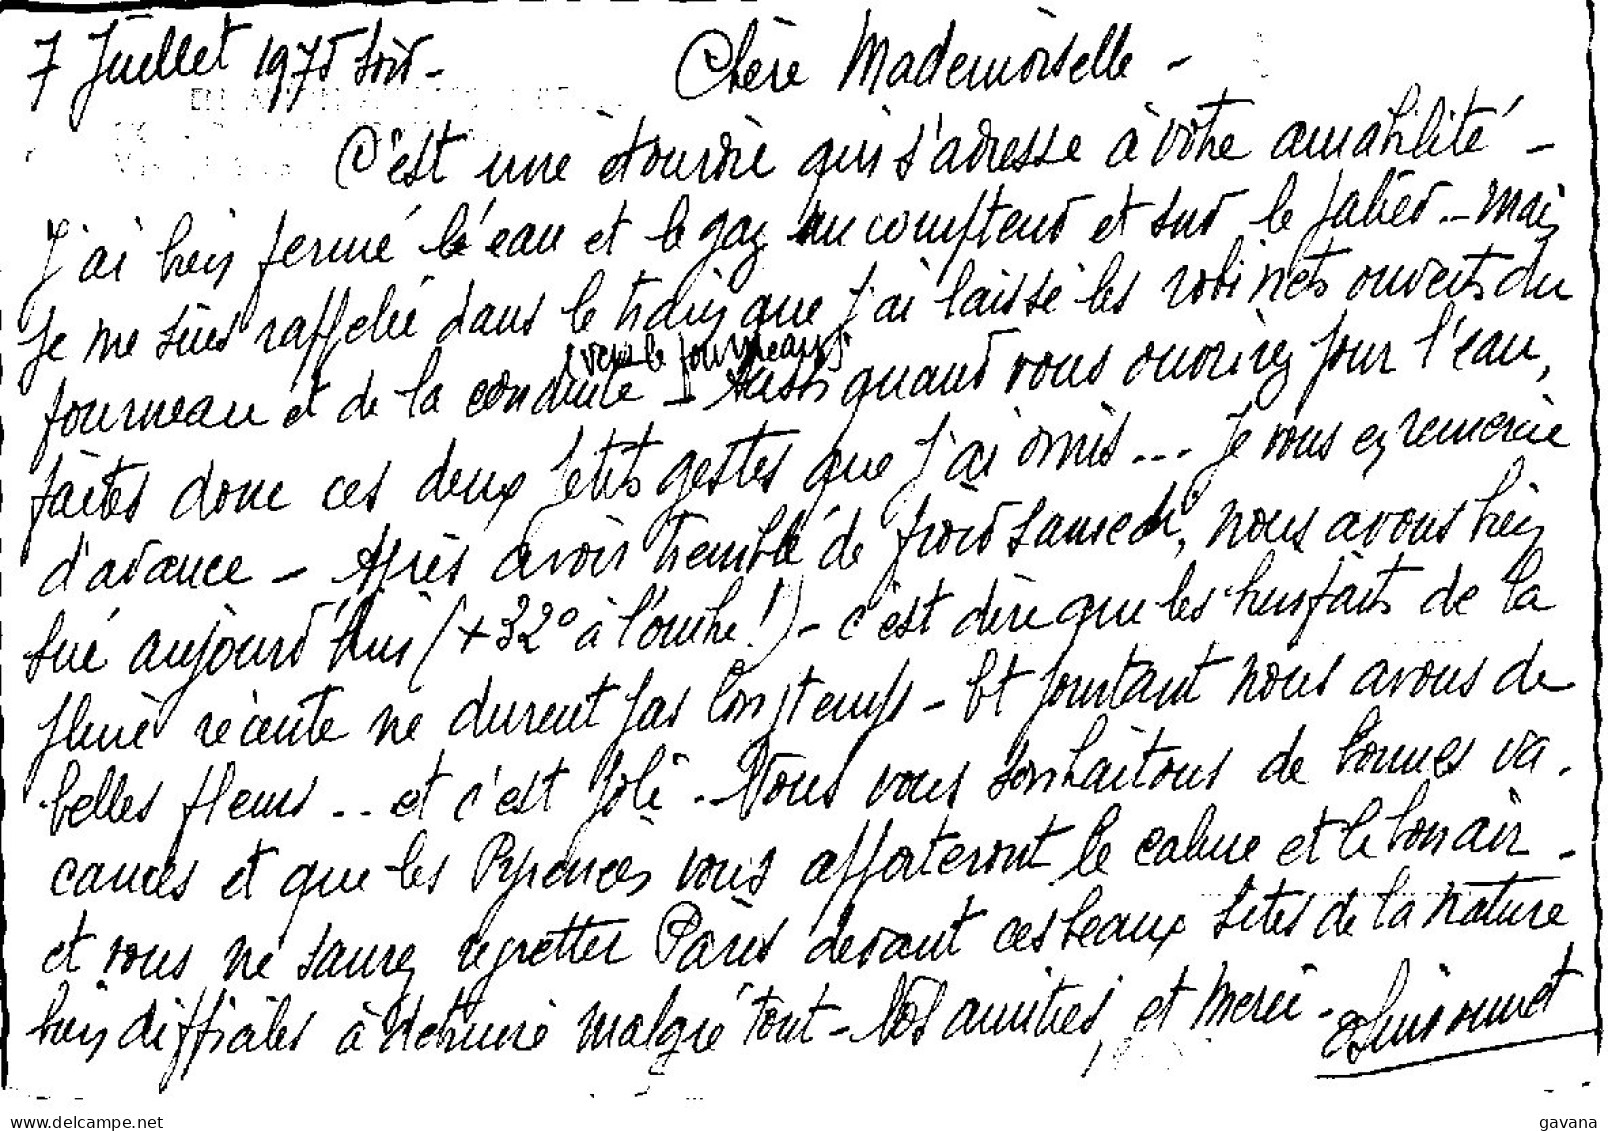 7 Juillet 1975 soir - Chère Mademoiselle -
C'est une étourdie qui s'adresse à votre amabilité -
J'ai bien fermé l'eau et le gaz au compteur et sur le palier .. Mais
je me suis rappelée dans le train que j'ai laissé les robinets ouverts du
(vers le fourneau)
fourneau et de la conduite - Aussi quand vous ouvrirez pour l'eau,
faites donc ces deux petits gestes que j'ai omis ... Je vous en remercie
d'avance - Après avoir tremblé de froid samedi, nous avons bien
sué aujourd'hui (+32° à l'ombre !) - c'est dire que les bienfaits de la
pluie récente ne durent pas longtemps - Et pourtant nous avons de
belles fleurs .. et c'est joli. - Nous vous souhaitons de bonnes va.
cances et que les Pyrénées vous apporteront le calme et le bon air -
et vous ne saurez regretter Paris devant ces beaux sites de la nature
bien difficiles à détruire malgré tout - Nos amitiés, et Merci -
gavana
www.delcampe.net